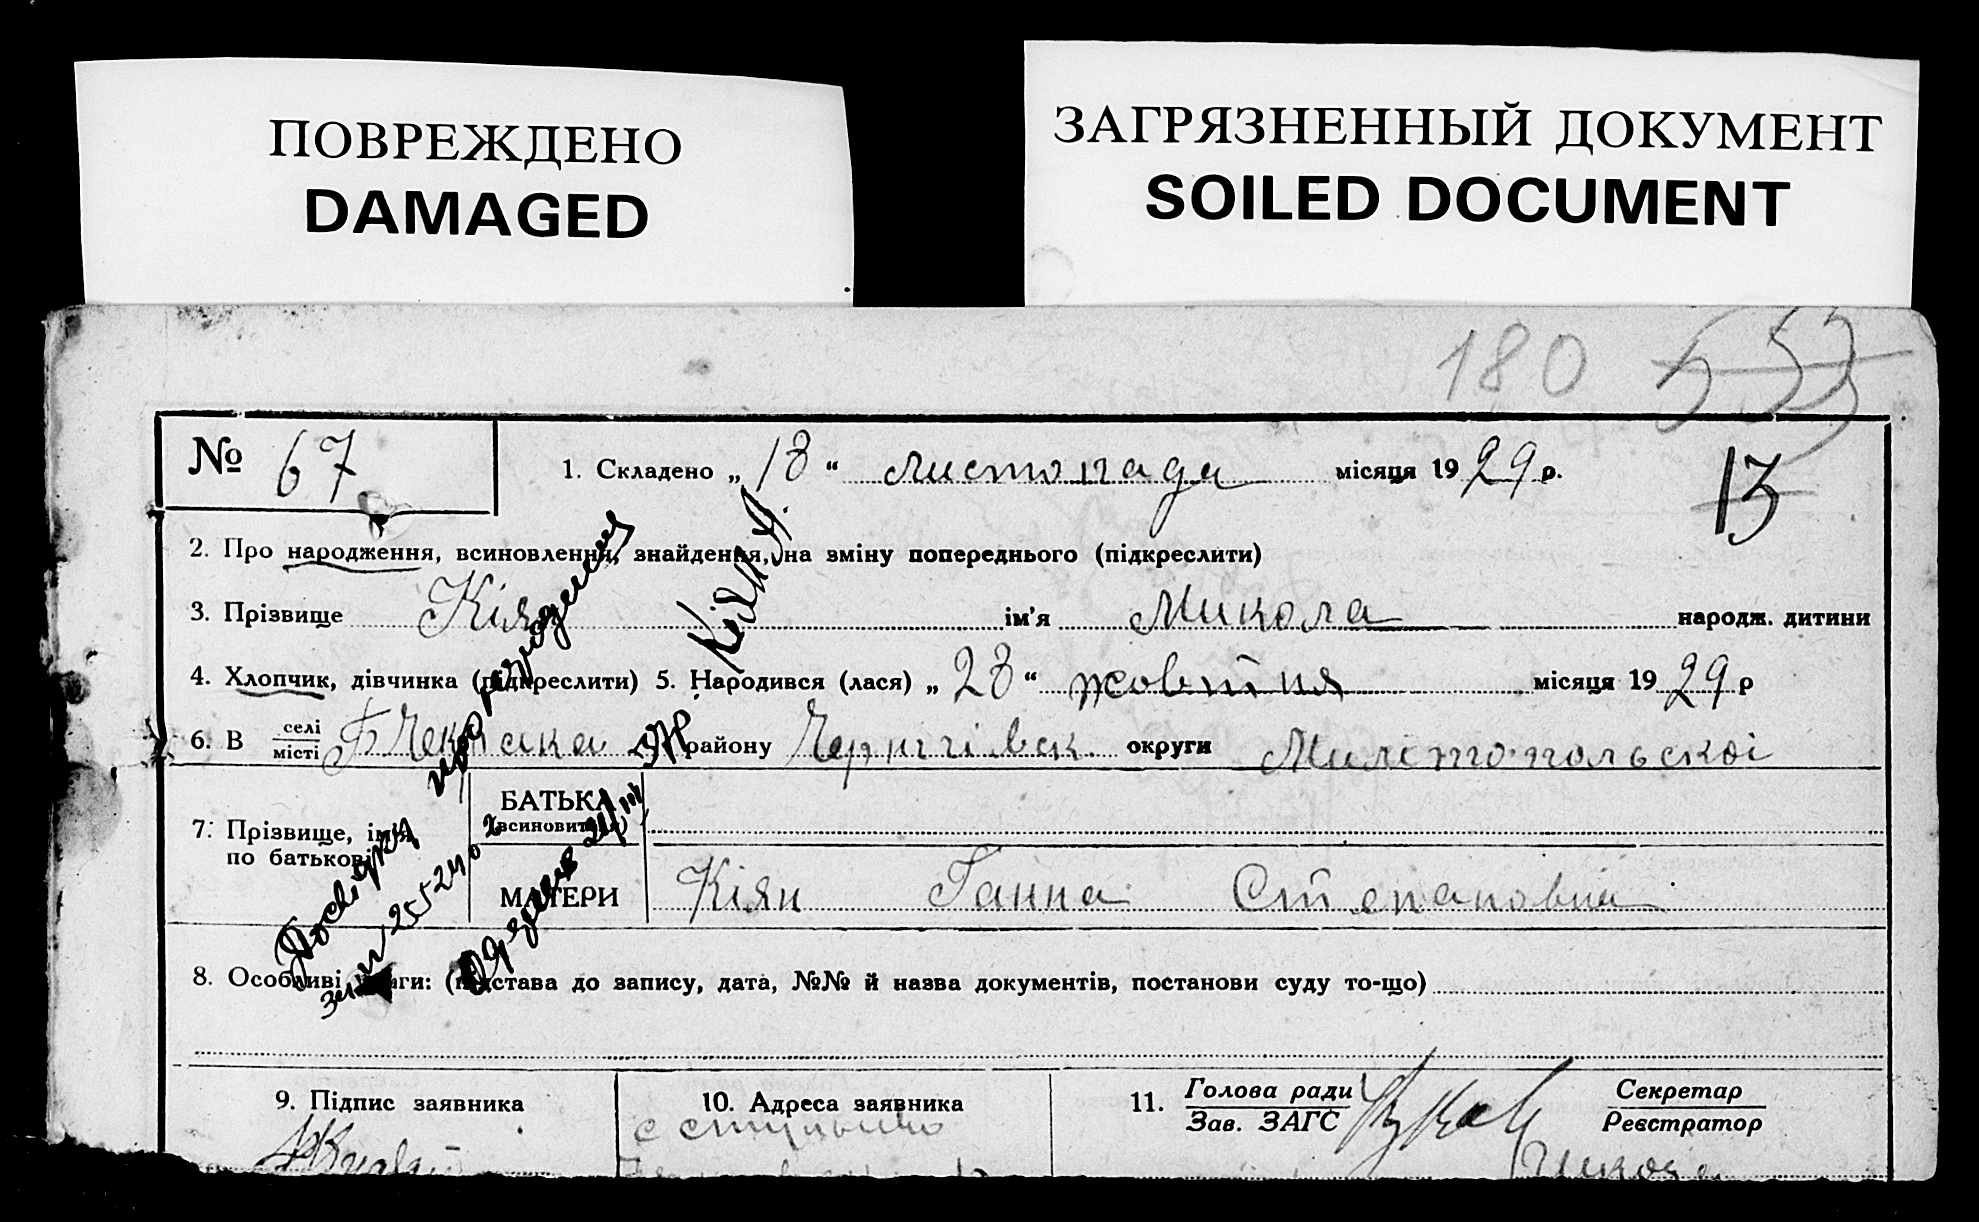 ПОВРЕЖДЕНО
DAMAGED
ЗАГРЯЗНЕННЫЙ ДОКУМЕНТ
SOILED DOCUMENT
180 553
13
№ 67
1. Складено „ 18 “ листопада місяця 1929 р.
2. Про народження, всиновлення, знайдення, на зміну попереднього (підкреслити)
3. Прізвище Кіян ім'я Микола народж. дитини
4. Хлопчик, дівчинка (підкреслити) 5. Народився (лася) „ 28 “ жовтня місяця 1929 р
6. В селі місті району Чернігівск. округи Мелітопольскої
7. Прізвище, ім'я, по батькові
БАТЬКА (всиновителя)
МАТЕРИ Кіян Ганна Степановна
8. Особливі уваги: (підстава до запису, дата, №№ й назва документів, постанови суду то-що)
про народження
9. Підпис заявника
10. Адреса заявника
11. Голова ради Зав. ЗАГС
Секретар Реєстратор